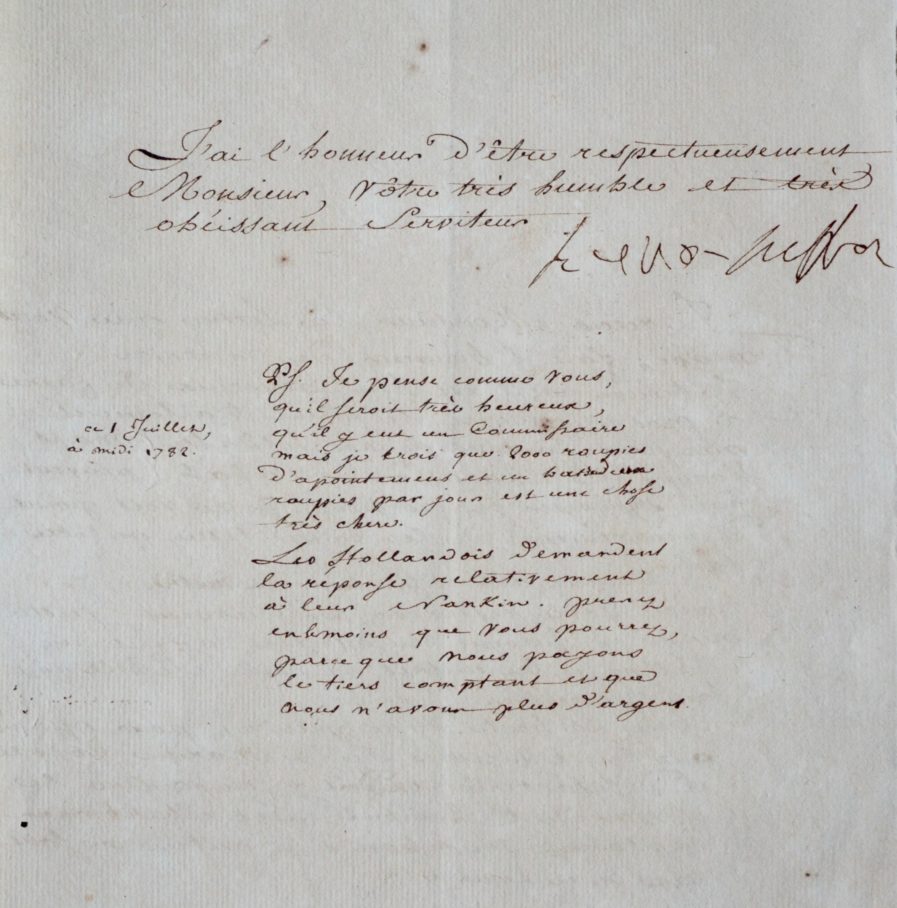 J'ai l'honneur d'être respectueusement
Monsieur, Vôtre très humble et très
obéissant Serviteur
PS. Je pense comme vous,
qu'il seroit très heureux,
qu'il y eut un Commissaire
ce 1 Juillet,
à midi 1782.
mais je trois que 2000 roupies
d'apointemens et un
roupies par jour est une chose
très chere.
Les Hollandois demandent
la réponse relativement
à leur Nankin. prenez
en le moins que vous pourrez,
parce que nous payons
le tiers comptant et que
nous n'avons plus d'argent.